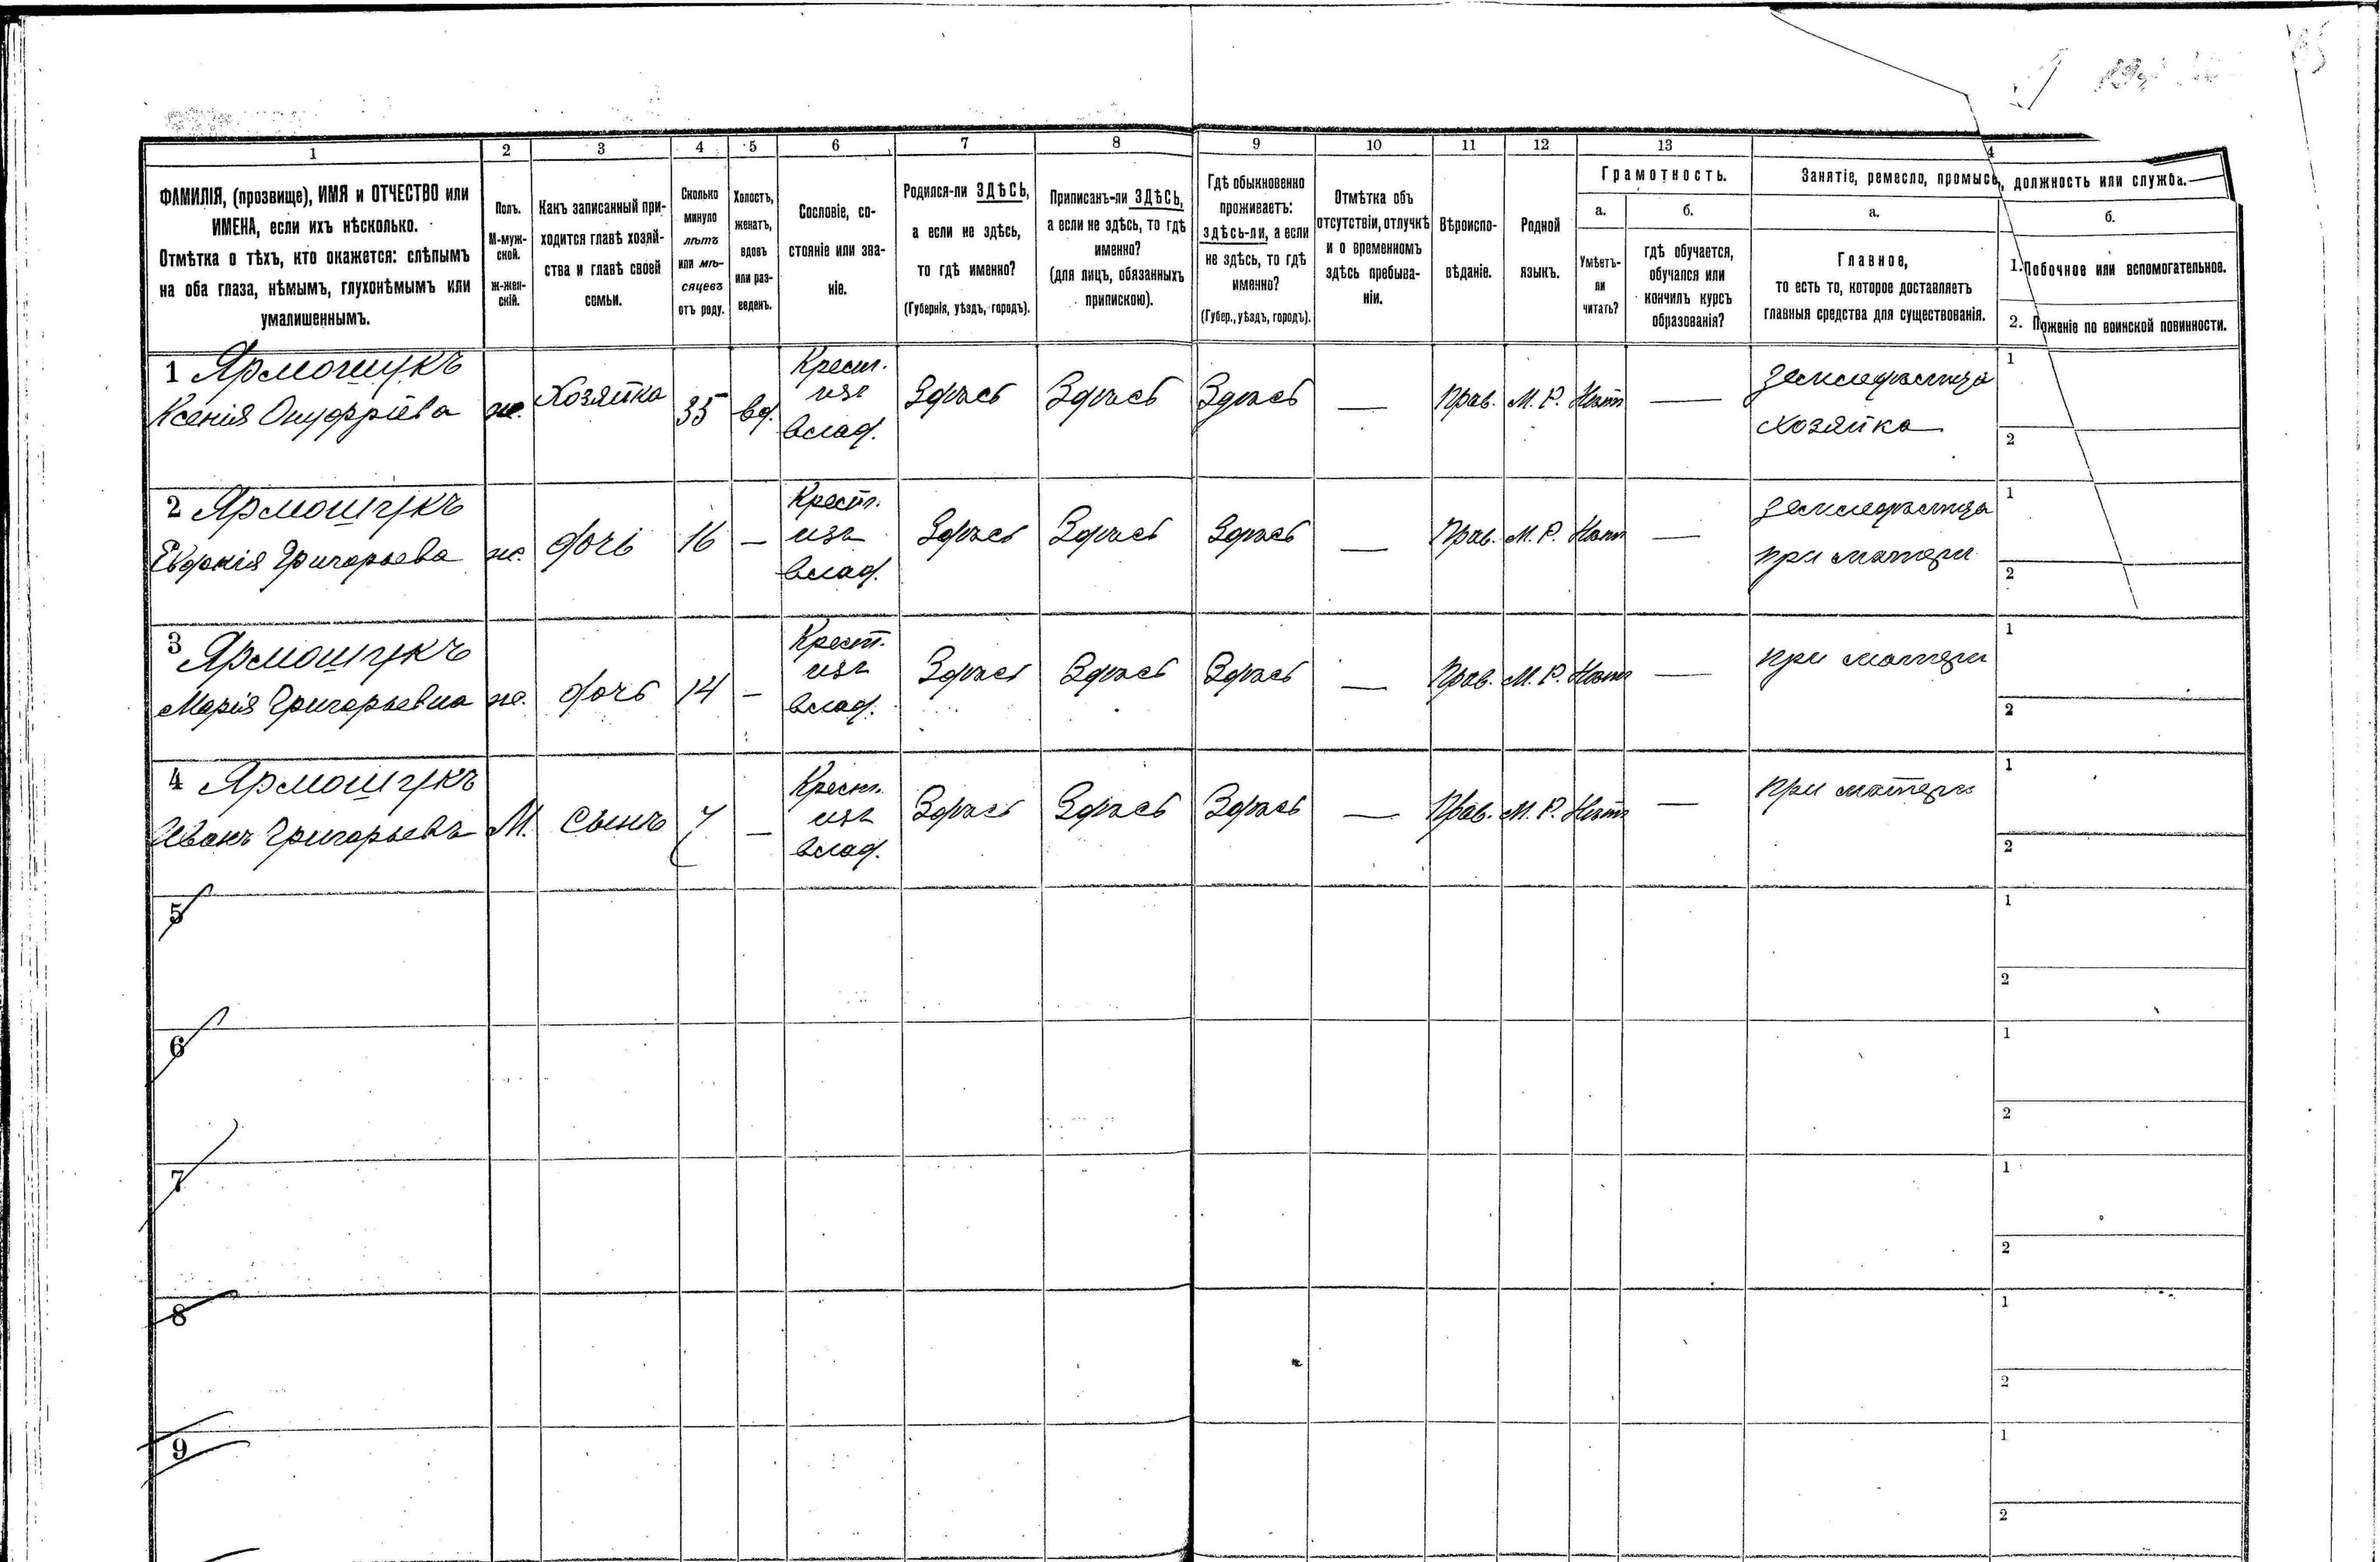 1 2 3 4 5 6 7 8 9 10 11 12 13 4
ФАМИЛІЯ, (прозвище), ИМЯ и ОТЧЕСТВО или
ИМЕНА, если ихъ нѣсколько.
Отмѣтка о тѣхъ, кто окажется: слѣпымъ
на оба глаза, нѣмымъ, глухонѣмымъ или
умалишеннымъ.
Полъ.
М-муж-
ской.
ж-жен-
скій.
Какъ записанный при-
ходится главѣ хозяй-
ства и главѣ своей
семьи.
Сколько
минуло
лѣтъ
или мѣ-
сяцевъ
отъ роду.
Холостъ,
женатъ,
вдовъ
или раз-
веденъ.
Сословіе, со-
стояніе или зва-
ніе.
Родился-ли ЗДѢСЬ,
а если не здѣсь,
то гдѣ именно?
(Губернія, уѣздъ, городъ).
Приписанъ-ли ЗДѢСЬ,
а если не здѣсь, то гдѣ
именно?
(для лицъ, обязанныхъ
припискою).
Гдѣ обыкновенно
проживаетъ:
здѣсь-ли, а если
не здѣсь, то гдѣ
именно?
(Губер., уѣздъ, городъ).
Отмѣтка объ
отсутствіи, отлучкѣ
и о временномъ
здѣсь пребыва-
ніи.
Вѣроиспо-
вѣданіе.
Родной
языкъ.
Грамотность.
а.
Умѣетъ-
ли
читать?
б.
гдѣ обучается,
обучался или
кончилъ курсъ
образованія?
Занятіе, ремесло, промысъ, должность или служба.
а.
Главное,
то есть то, которое доставляетъ
главныя средства для существованія.
б.
1. Побочное или вспомогательное.
2. Поженіе по воинской повинности.
1 Ярмошукъ
Ксенія Онуфріева
ж.
Хозяйка
35
вд.
Крест.
изъ
влад.
Здѣсь
Здѣсь
Здѣсь
—
Прав.
М. Р.
Нѣтъ
—
земледѣлица
хозяйка
1
2
2 Ярмошукъ
Евдокія Григорьева
ж.
дочь
16
—
Крест.
изъ
влад.
Здѣсь
Здѣсь
Здѣсь
—
Прав.
М. Р.
Нѣтъ
—
земледѣлица
при матери
1
2
3 Ярмошукъ
Марія Григорьевна
ж.
дочь
14
—
Крест.
изъ
влад.
Здѣсь
Здѣсь
Здѣсь
—
Прав.
М. Р.
Нѣтъ
—
при матери
1
2
4 Ярмошукъ
Иванъ Григорьевъ
М.
сынъ
7
—
Крест.
изъ
влад.
Здѣсь
Здѣсь
Здѣсь
—
Прав.
М. Р.
Нѣтъ
—
при матери
1
2
5
1
2
6
1
2
7
1
2
8
1
2
9
1
2